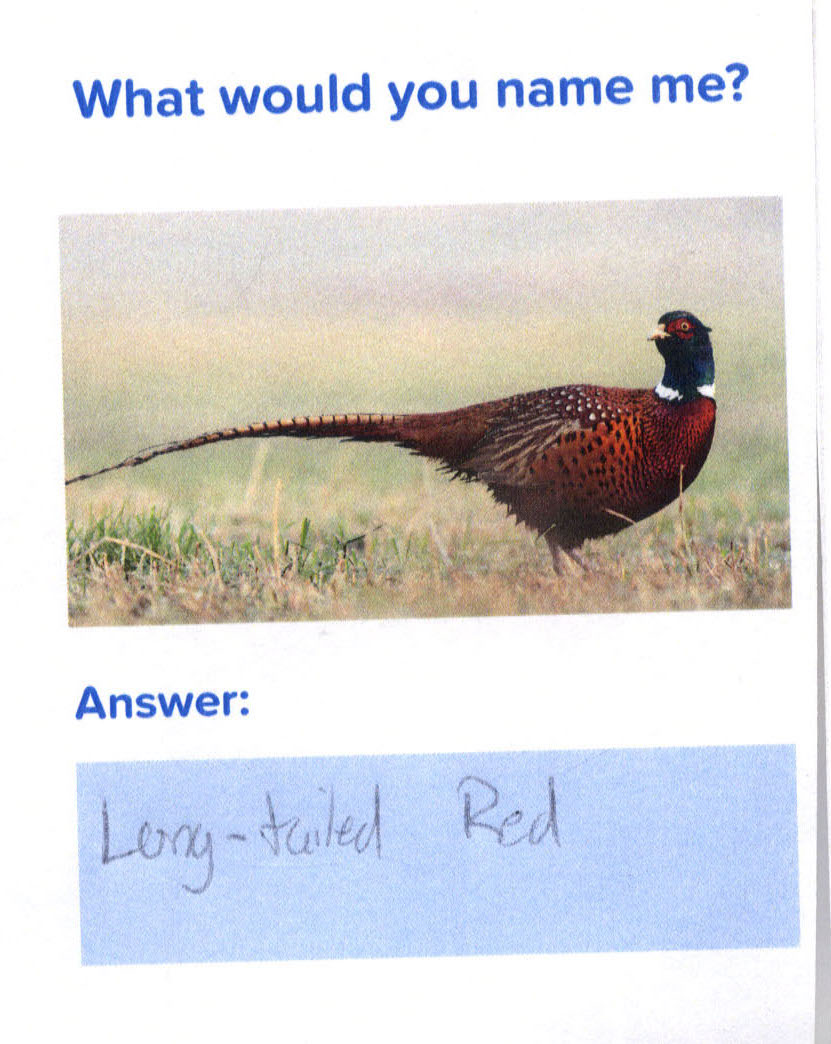 What would you name me?
Answer:
Long-tailed Red